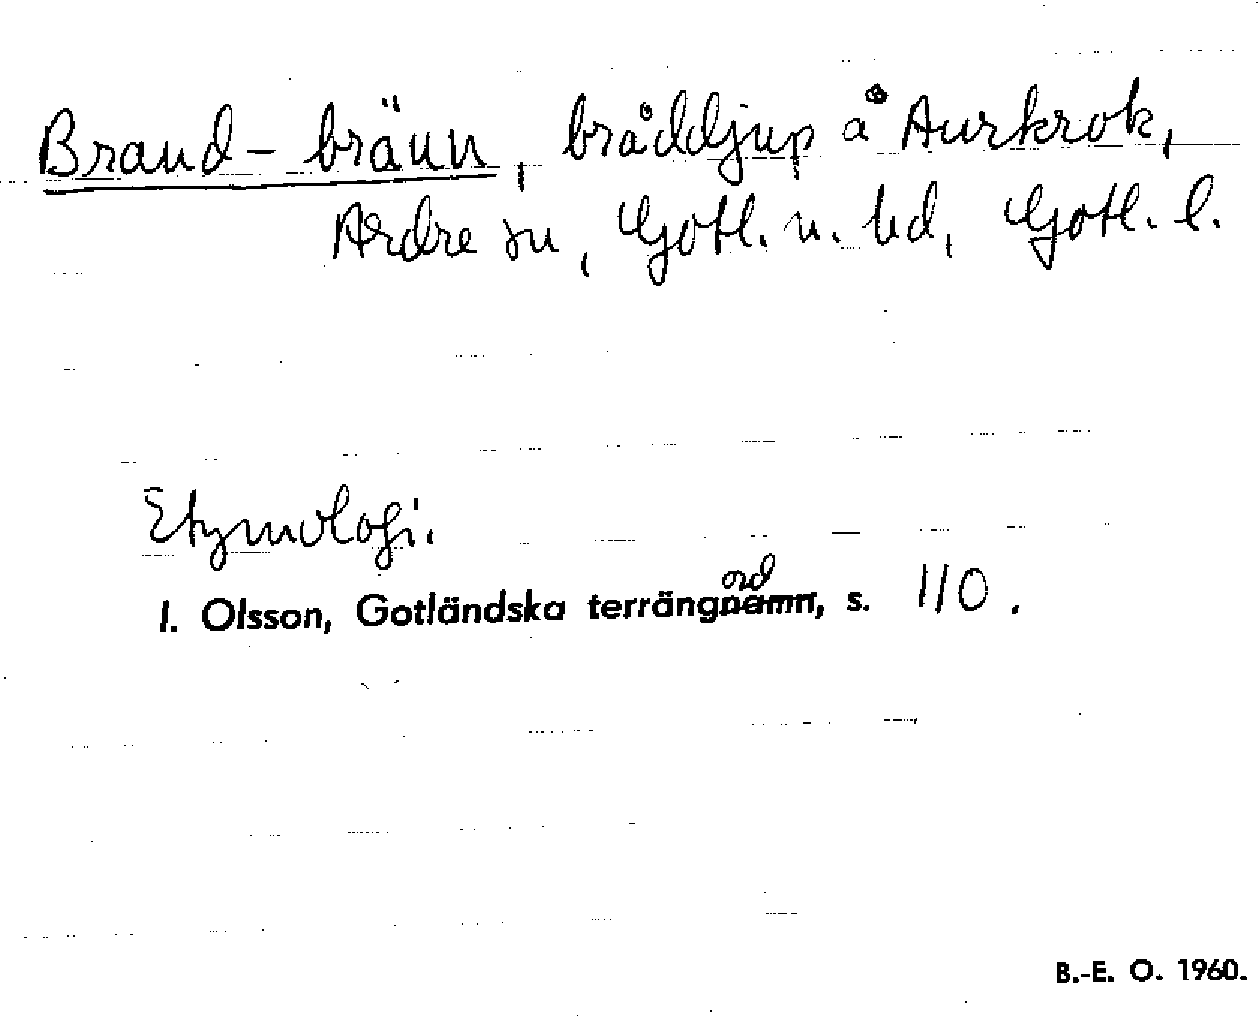 Brand-bränn, bråddjup å Aurkrok,
Ardre sn, Gotl. n. hd, Gotl. l.
Etymologi.
I. Olsson, Gotländska terrängord, s. 110.
B.-E. O. 1960.